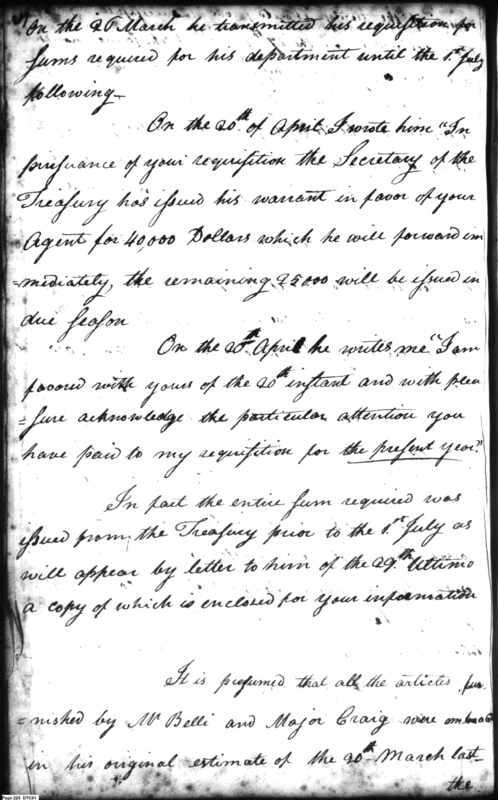 On the 20 March he transmitted his requisition for
sums required for his department until the 1st July
following—
On the 20th of April I wrote him "In
pursuance of your requisition the Secretary of the
Treasury has issued his warrant in favor of your
Agent for 40,000 Dollars which he will forward im
=mediately, the remaining 25000 will be issued in
due season
On the April he writes me "I am
favored with yours of the 20th instant and with plea
=sure acknowledge the particular attention you
have paid to my requisition for the present year."
In fact the entire sum required was
issued from the Treasury prior to the 1st July as
will appear by letter to him of the 29th Ultimo
a copy of which is enclosed for your information
It is presumed that all the articles fur
=nished by Mr Belli and Major Craig were
in his original estimate of the 20th March last—
the
Page 225 DTC01